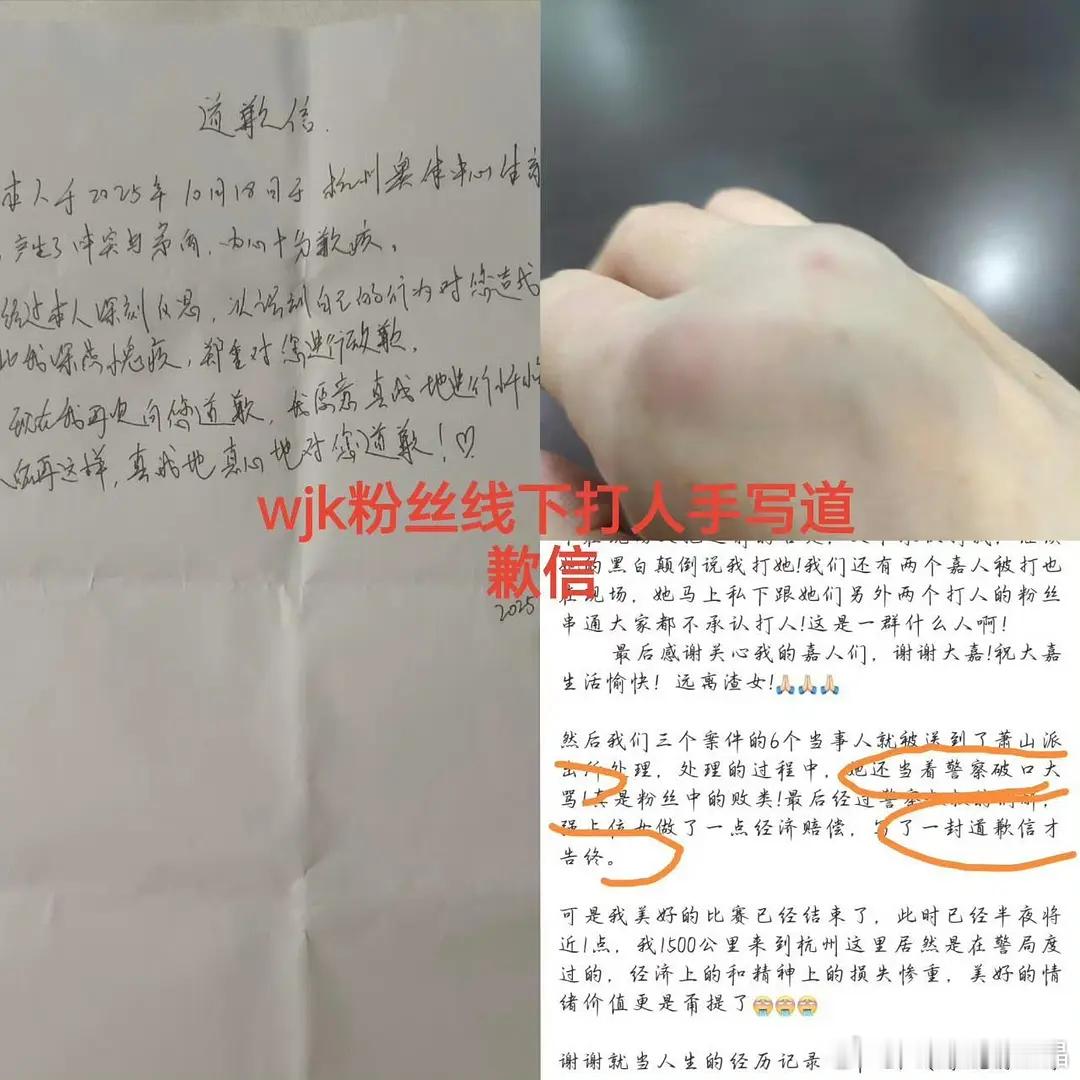 道歉信.
本人于2025年10月18日于杭州奥体中心生
产生了冲突与矛盾，内心十分歉疚。
经过本人深刻反思，认识到自己的行为对您造成
此我深感愧疚，郑重对您进行致歉.
现在我再更向您道歉，我愿意真成地进行
后再这样，真我地真心地对您道歉！♡
2025
wjk粉丝线下打人手写道
歉信
的黑白颠倒说我打她!我们还有两个嘉人被打也
在现场，她马上私下跟她们另外两个打人的粉丝
串通大家都不承认打人!这是一群什么人啊!
最后感谢关心我的嘉人们，谢谢大嘉!祝大嘉
生活愉快! 远离渣女!🙏🏻🙏🏻🙏🏻
然后我们三个案件的6个当事人就被送到了萧山派
出所处理，处理的过程中，她还当着警察破口大
骂!真是粉丝中的败类!最后经过警察
强上位女做了一点经济赔偿，写了一封道歉信才
告终。
可是我美好的比赛已经结束了，此时已经半夜将
近1点，我1500公里来到杭州这里居然是在警局度
过的，经济上的和精神上的损失惨重，美好的情
绪价值更是甭提了😭😭😭
谢谢就当人生的经历记录